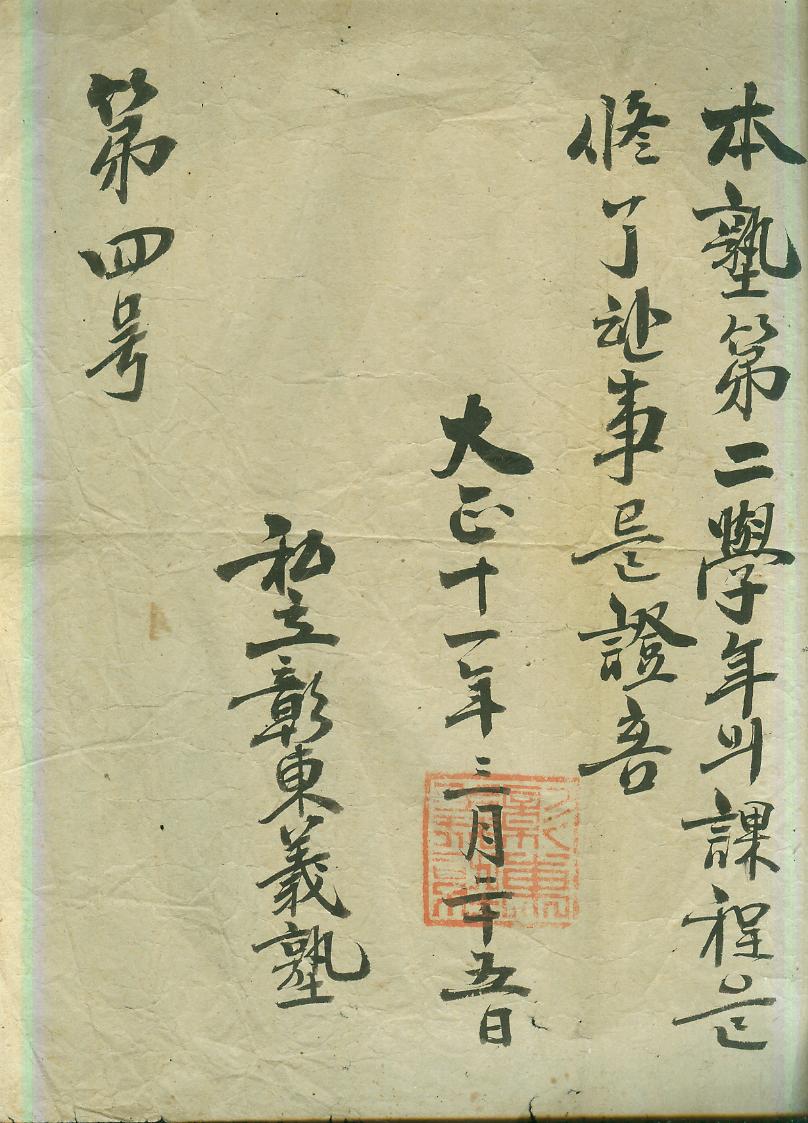 本塾第二學年의課程을
修了한事를證홈
大正十一年三月二十五日
彰東義塾
私立彰東義塾
第四号